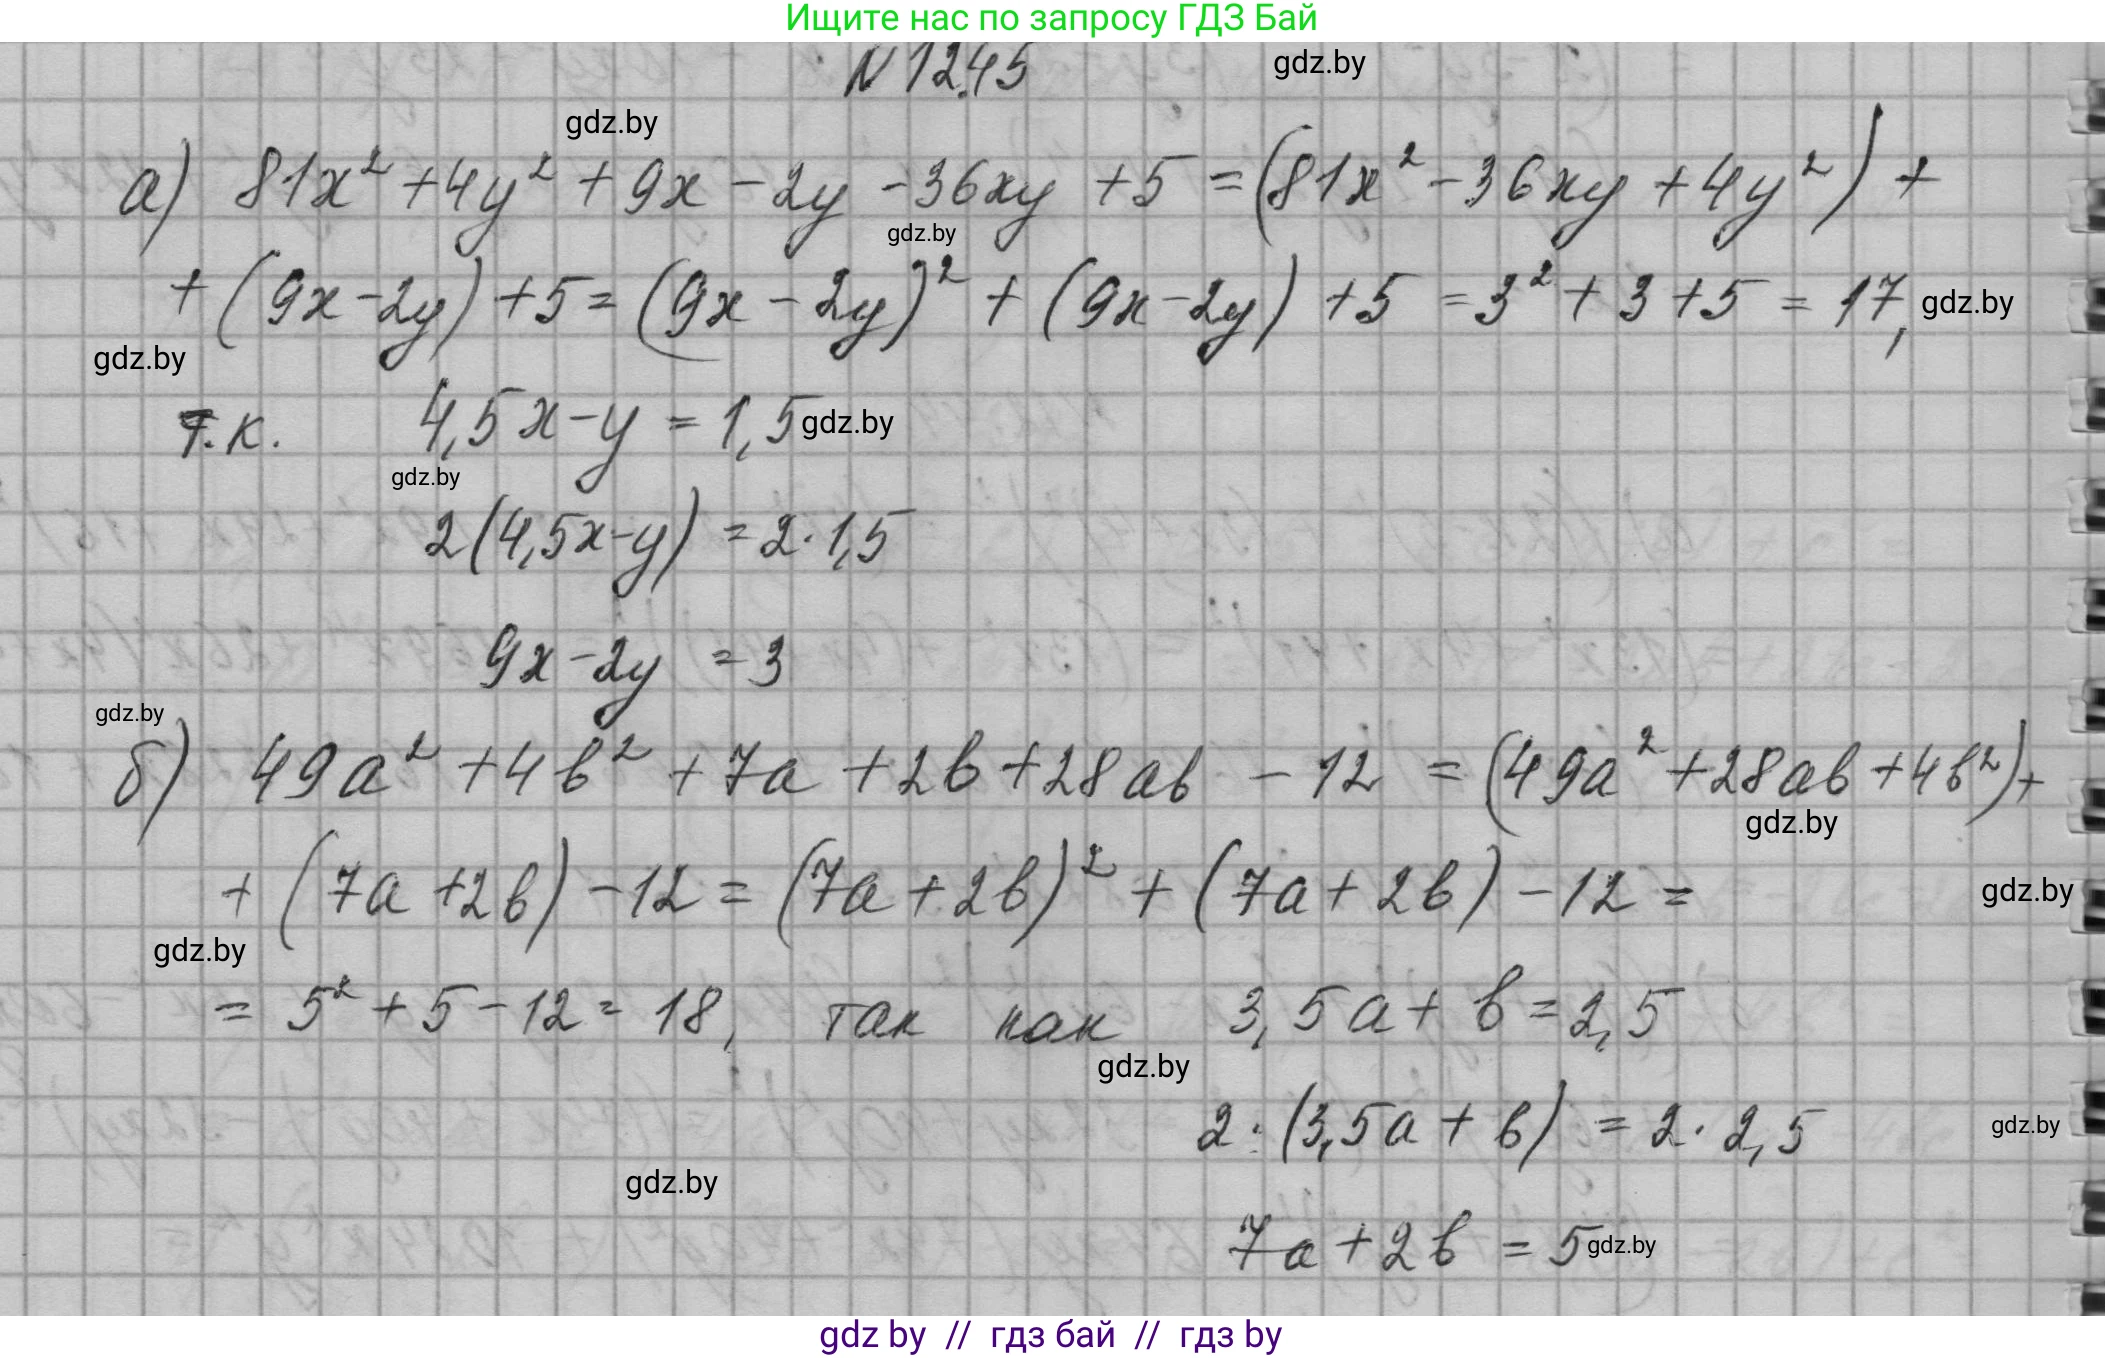 Ищите нас по запросу ГДЗ Бай
N 12.45
gdz.by
gdz.by
а) 81x² + 4y² + 9x - 2y - 36xy + 5 = (81x² - 36xy + 4y²) +
gdz.by
+ (9x - 2y) + 5 = (9x - 2y)² + (9x - 2y) + 5 = 3² + 3 + 5 = 17,
gdz.by
gdz.by
т.к. 4,5x - y = 1,5
gdz.by
gdz.by
2(4,5x - y) = 2 · 1,5
9x - 2y = 3
gdz.by
б) 49a² + 4b² + 7a + 2b + 28ab - 12 = (49a² + 28ab + 4b²) +
gdz.by
+ (7a + 2b) - 12 = (7a + 2b)² + (7a + 2b) - 12 =
gdz.by
gdz.by
= 5² + 5 - 12 = 18, так как 3,5a + b = 2,5
gdz.by
2 · (3,5a + b) = 2 · 2,5
gdz.by
gdz.by
7a + 2b = 5
gdz.by
gdz by // гдз бай // гдз by